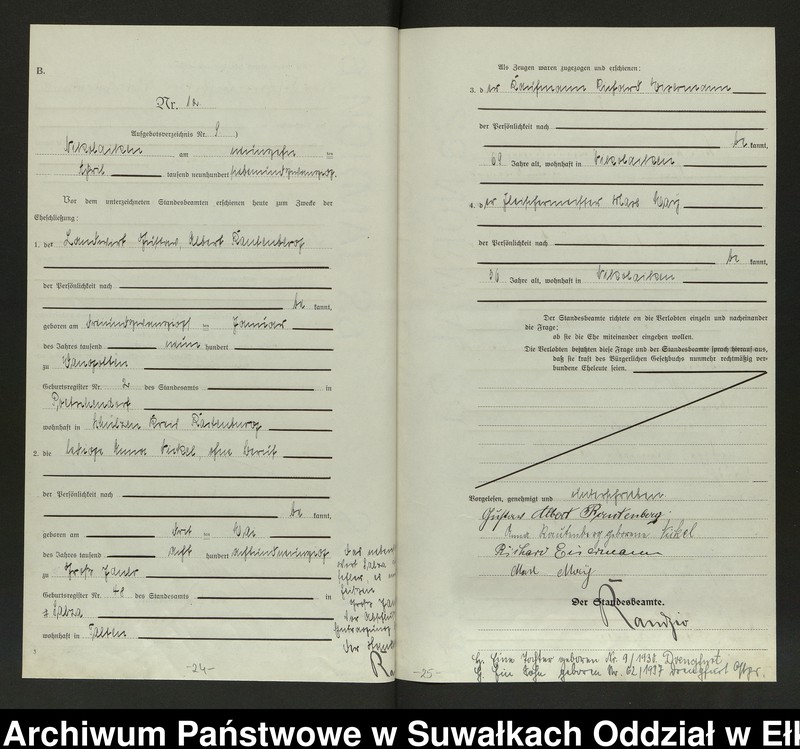 B.
Nr. 12.
Aufgebotsverzeichnis Nr. 9 )
Nikolaiken am neunzehn ten
April tausend neunhundert siebenundzwanzig.
Vor dem unterzeichneten Standesbeamten erschienen heute zum Zwecke der
Eheschließung:
1. der Landwirt Gustav Albert Rautenberg
der Persönlichkeit nach
be kannt,
geboren am dreiundzwanzigst ten Januar
des Jahres tausend neun hundert
zu
Geburtsregister Nr. 2 des Standesamts in
Poetschendorf
wohnhaft in Kreis Rastenburg
2. die ledige Anna Nickel, ohne Beruf
der Persönlichkeit nach
be kannt,
geboren am drit ten Mai
des Jahres tausend acht hundert achtundneunzig
zu Groß Jauer
Geburtsregister Nr. 48 des Standesamts in
Salza
wohnhaft in Talten
-24-
Als Zeugen waren zugezogen und erschienen:
3. der Kaufmann Richard Eisermann
der Persönlichkeit nach
be kannt,
69 Jahre alt, wohnhaft in Nikolaiken
4. der Fleischermeister Max Maig
der Persönlichkeit nach
be kannt,
36 Jahre alt, wohnhaft in Nikolaiken
Der Standesbeamte richtete an die Verlobten einzeln und nacheinander
die Frage:
ob sie die Ehe miteinander eingehen wollen.
Die Verlobten bejahten diese Frage und der Standesbeamte sprach hierauf aus,
daß sie kraft des Bürgerlichen Gesetzbuchs nunmehr rechtmäßig ver-
bundene Eheleute seien.
Vorgelesen, genehmigt und unterschrieben
Gustav Albert Rautenberg
Anna Rautenberg geborene Nickel
Richard Eisermann
Max Maig
Der Standesbeamte.
Randzio
G. Eine Tochter geboren Nr. 9/1938. Drengfurt
G. Ein Sohn geboren Nr. 62/1937 Drengfurt Ostpr.
-25-
Archiwum Państwowe w Suwałkach Oddział w Ełk